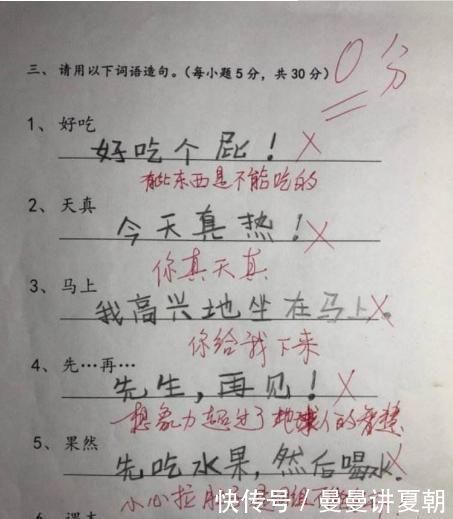 0分
三、请用以下词语造句。（每小题5分，共30分）
1、好吃
好吃个屁！
有些东西是不能吃的
2、天真
今天真热！
你真天真
3、马上
我高兴地坐在马上。
你给我下来
4、先…再…
先生，再见！
想象力超过了地球人的智慧
5、果然
先吃水果，然后喝水
小心拉肚
快传号/曼曼讲夏朝
6、课本